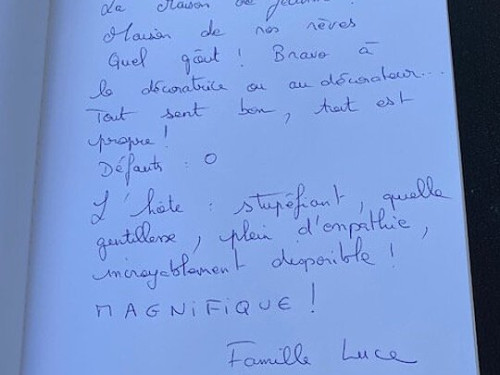 La Maison de
Maison de nos rêves
Quel goût ! Bravo à
la décoratrice ou au décorateur...
Tout sent bon, tout est
propre !
Défauts : 0
L'hôte : stupéfiant, quelle
gentillesse, plein d'empathie,
incroyablement disponible !
MAGNIFIQUE !
Famille Luce